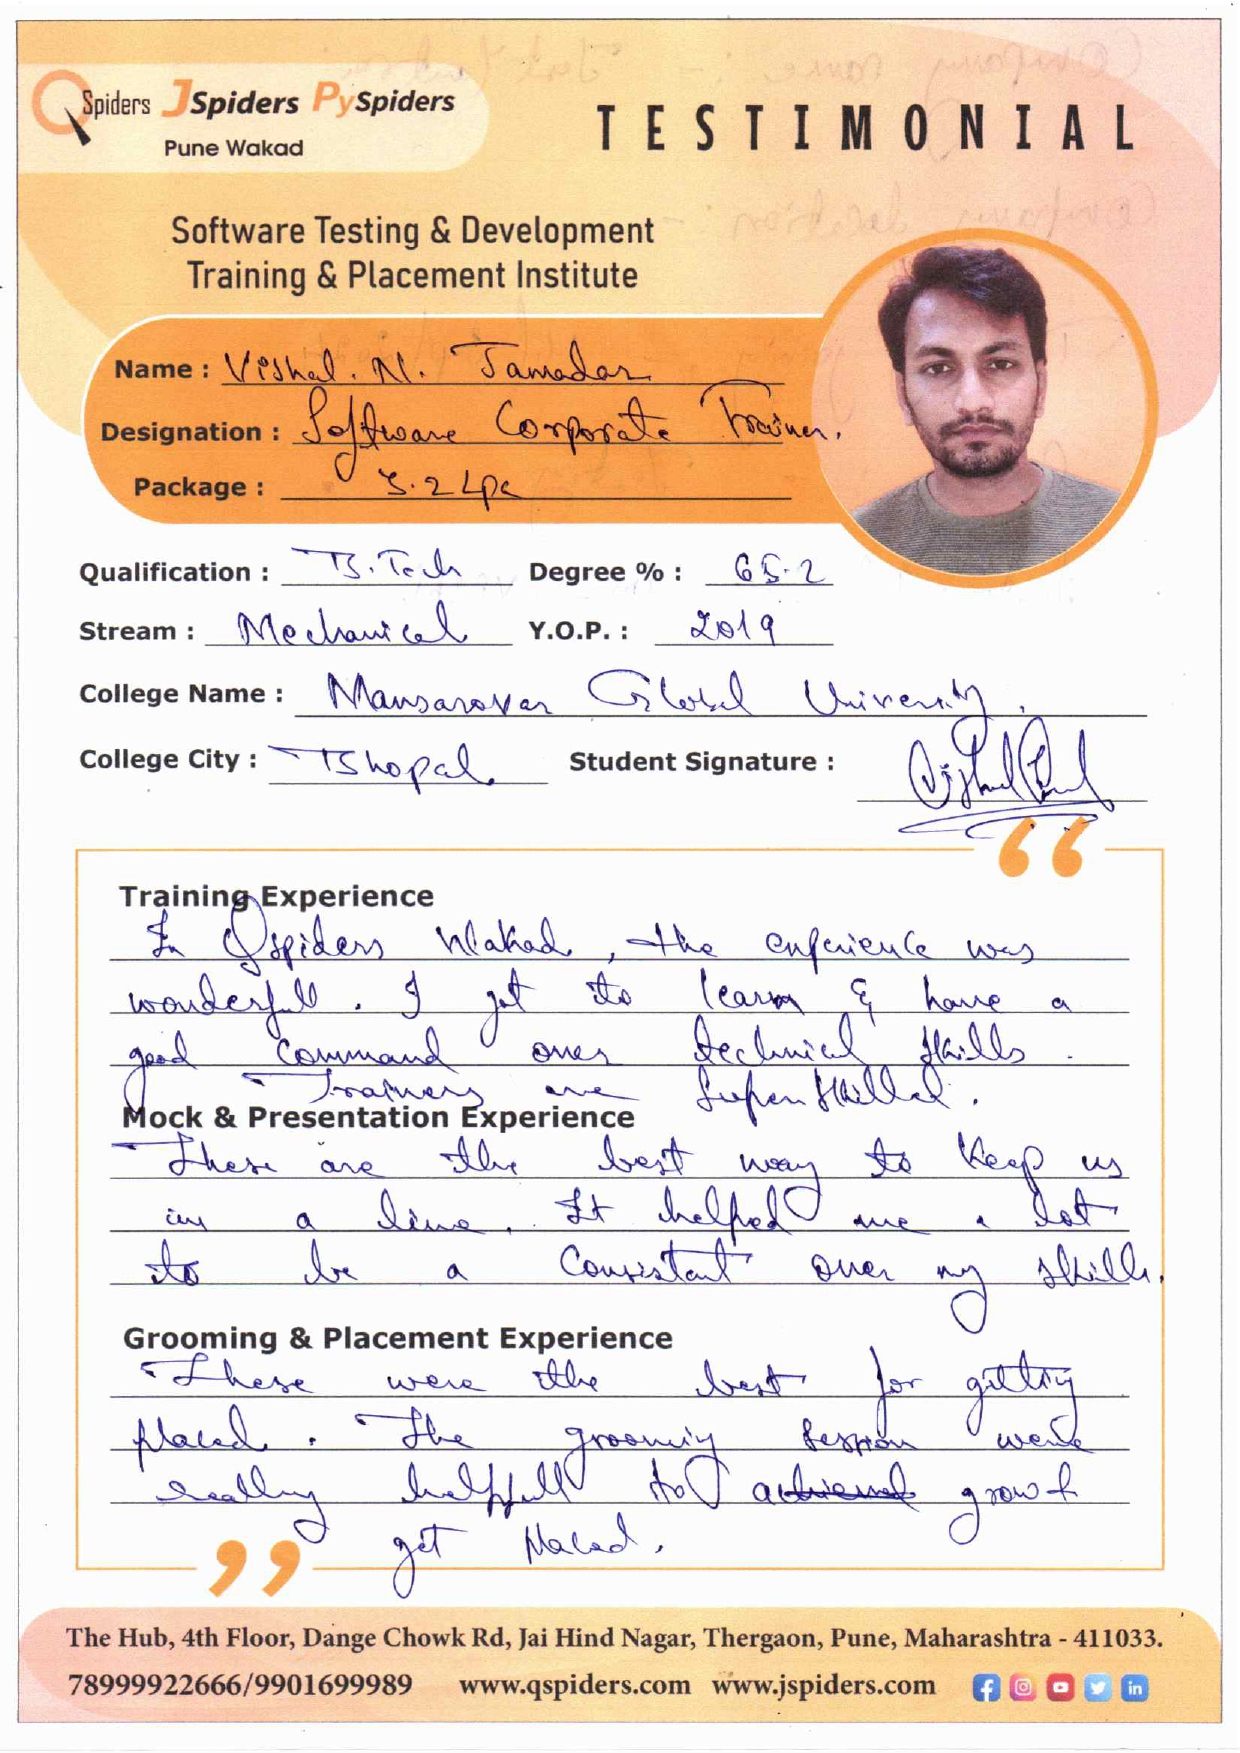 QSpiders JSpiders PySpiders
Pune Wakad
TESTIMONIAL
Software Testing & Development
Training & Placement Institute
Name : Vishal. N. Jamadar
Designation : Software Corporate Trainer.
Package : 3.2 Lpa
Qualification : B.Tech Degree % : 65.2
Stream : Mechanical Y.O.P. : 2019
College Name : Mansarovar Global University.
College City : Bhopal. Student Signature :
Training Experience
In Qspiders Wakad, the experience was
wonderfull. I get to learn & have a
good command over technical skills.
Trainers are Super skilled.
Mock & Presentation Experience
These are the best way to keep us
in a line. It helped me a lot
to be a consistant over my skills.
Grooming & Placement Experience
These were the best for getting
placed. The grooming session were
really helpfull to grow &
get placed.
The Hub, 4th Floor, Dange Chowk Rd, Jai Hind Nagar, Thergaon, Pune, Maharashtra - 411033.
78999922666/9901699989 www.qspiders.com www.jspiders.com